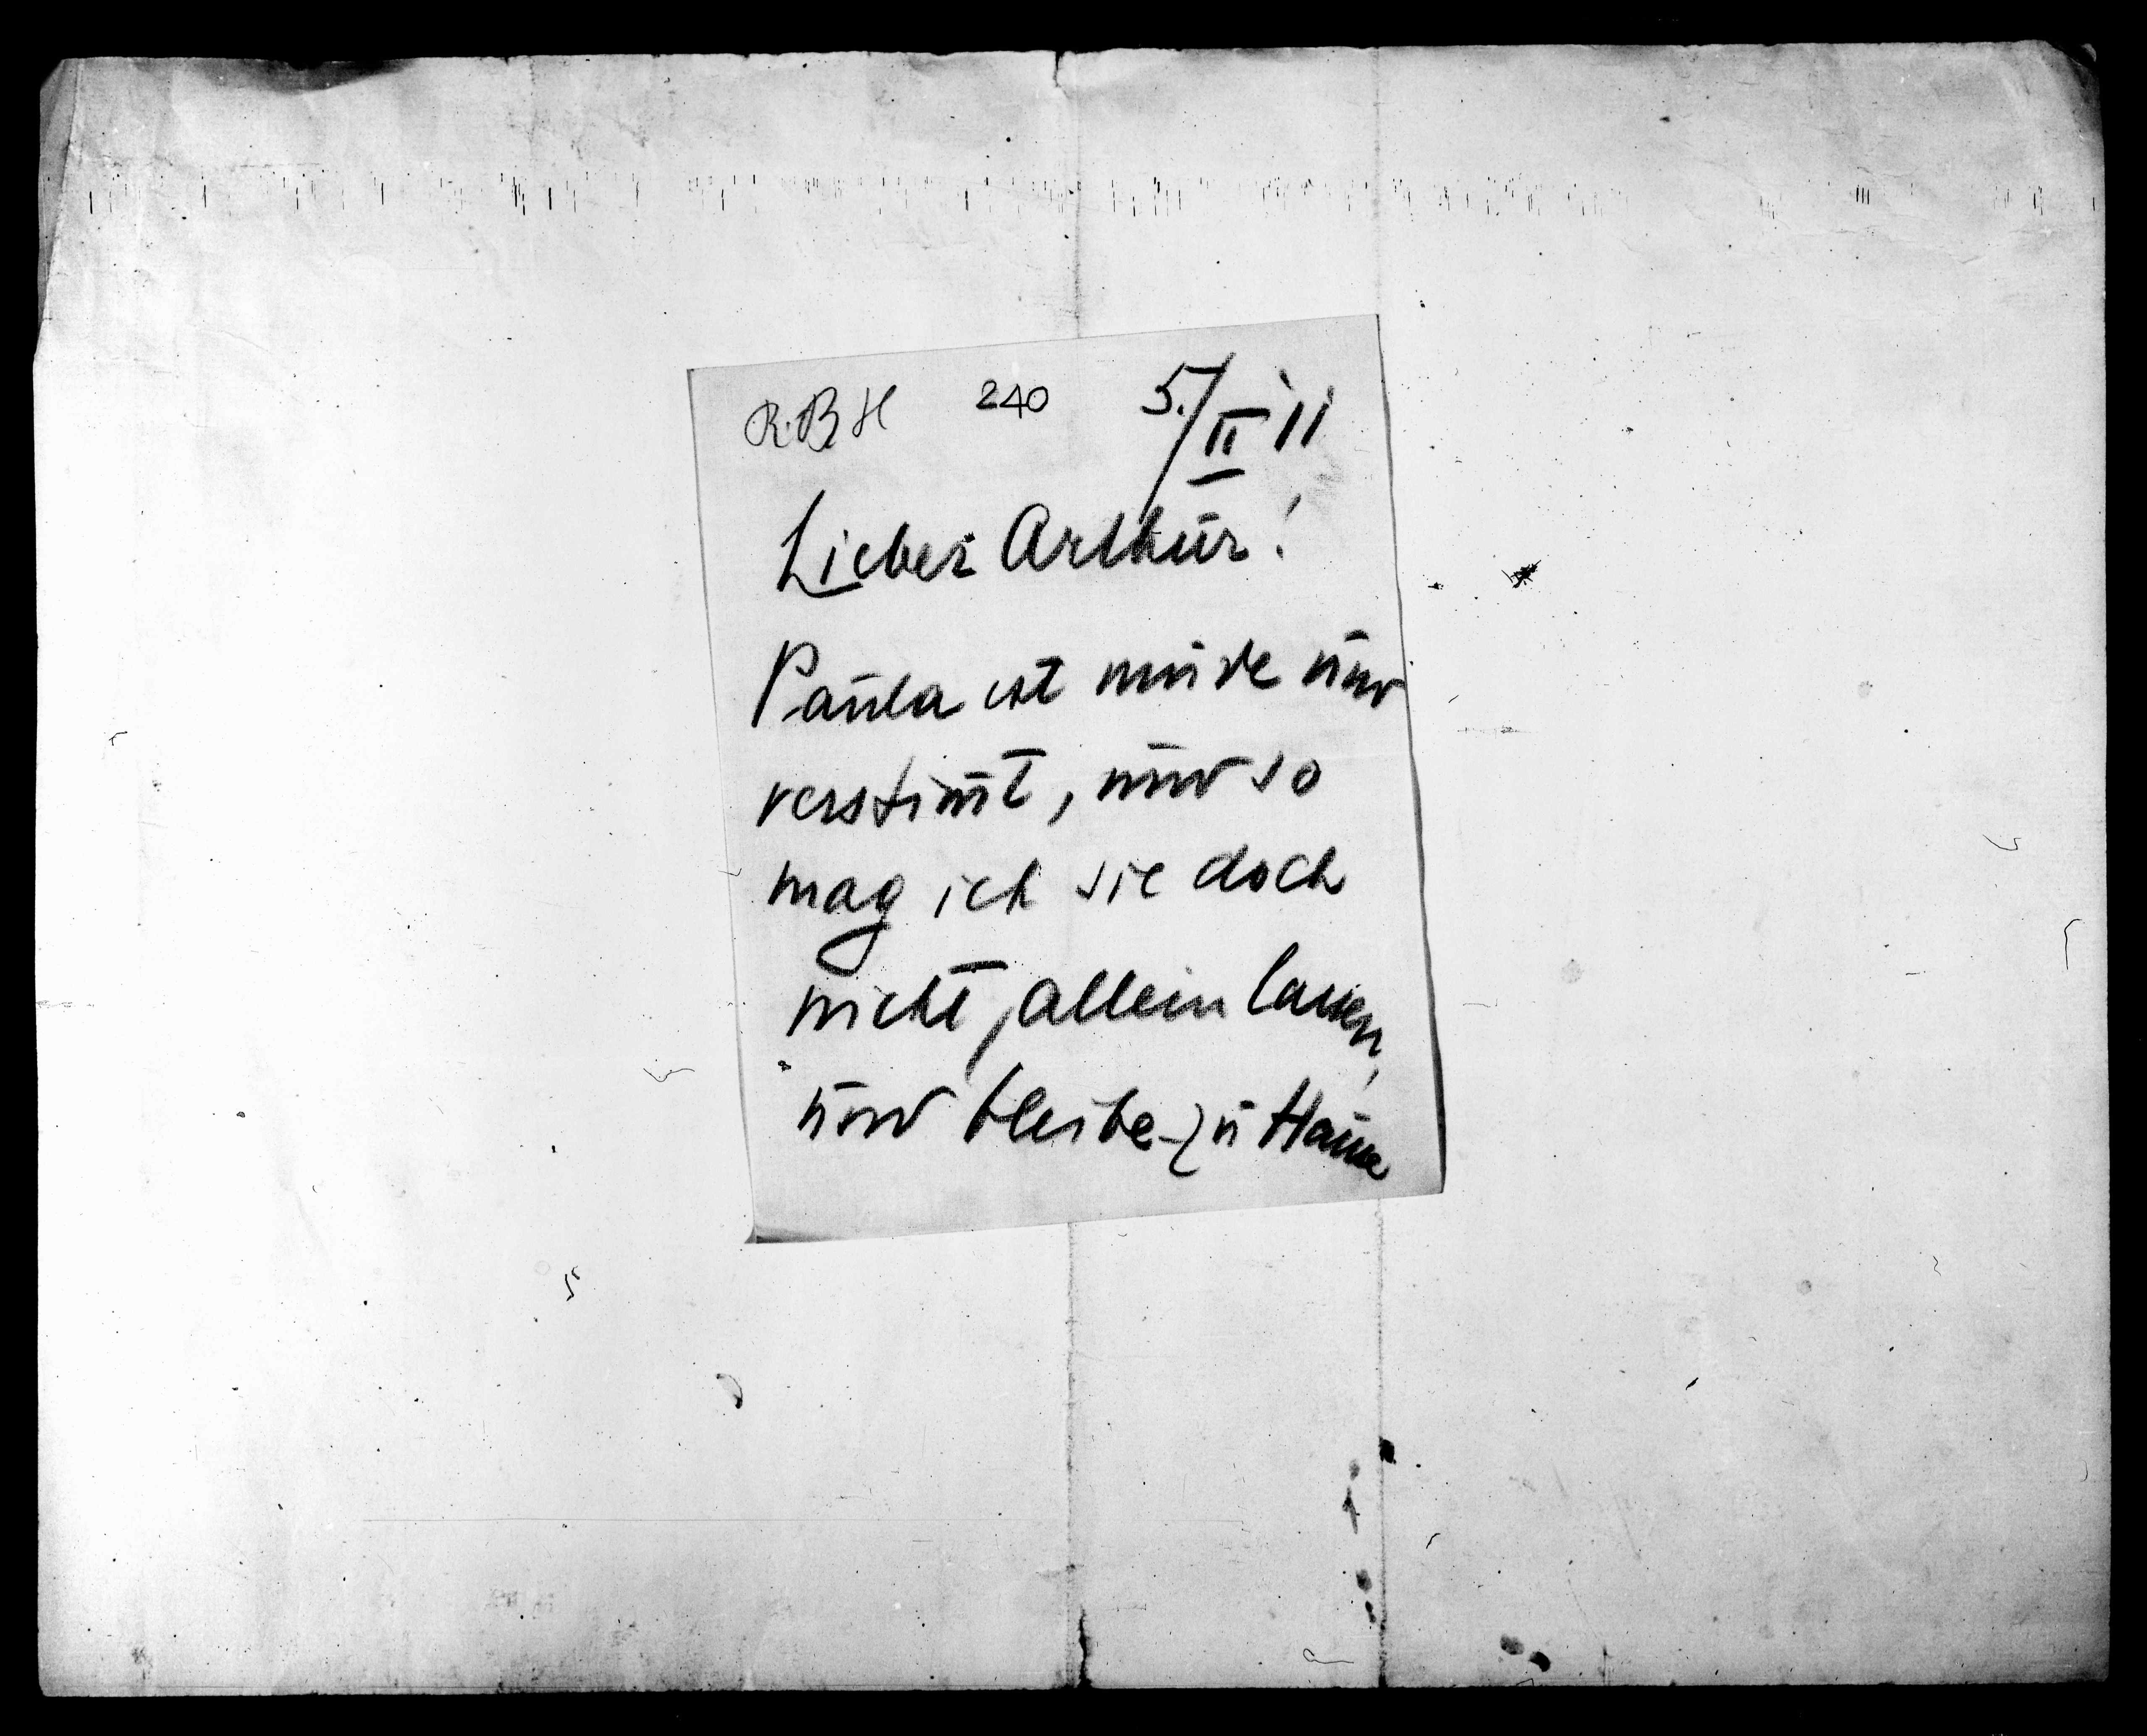 R.B.H 240 5./II 11
Lieber Arthur!
Paula ist müde und
verstim̄t, und so
mag ich sie doch
nicht, allein lassen,
und bleibe zu Hause